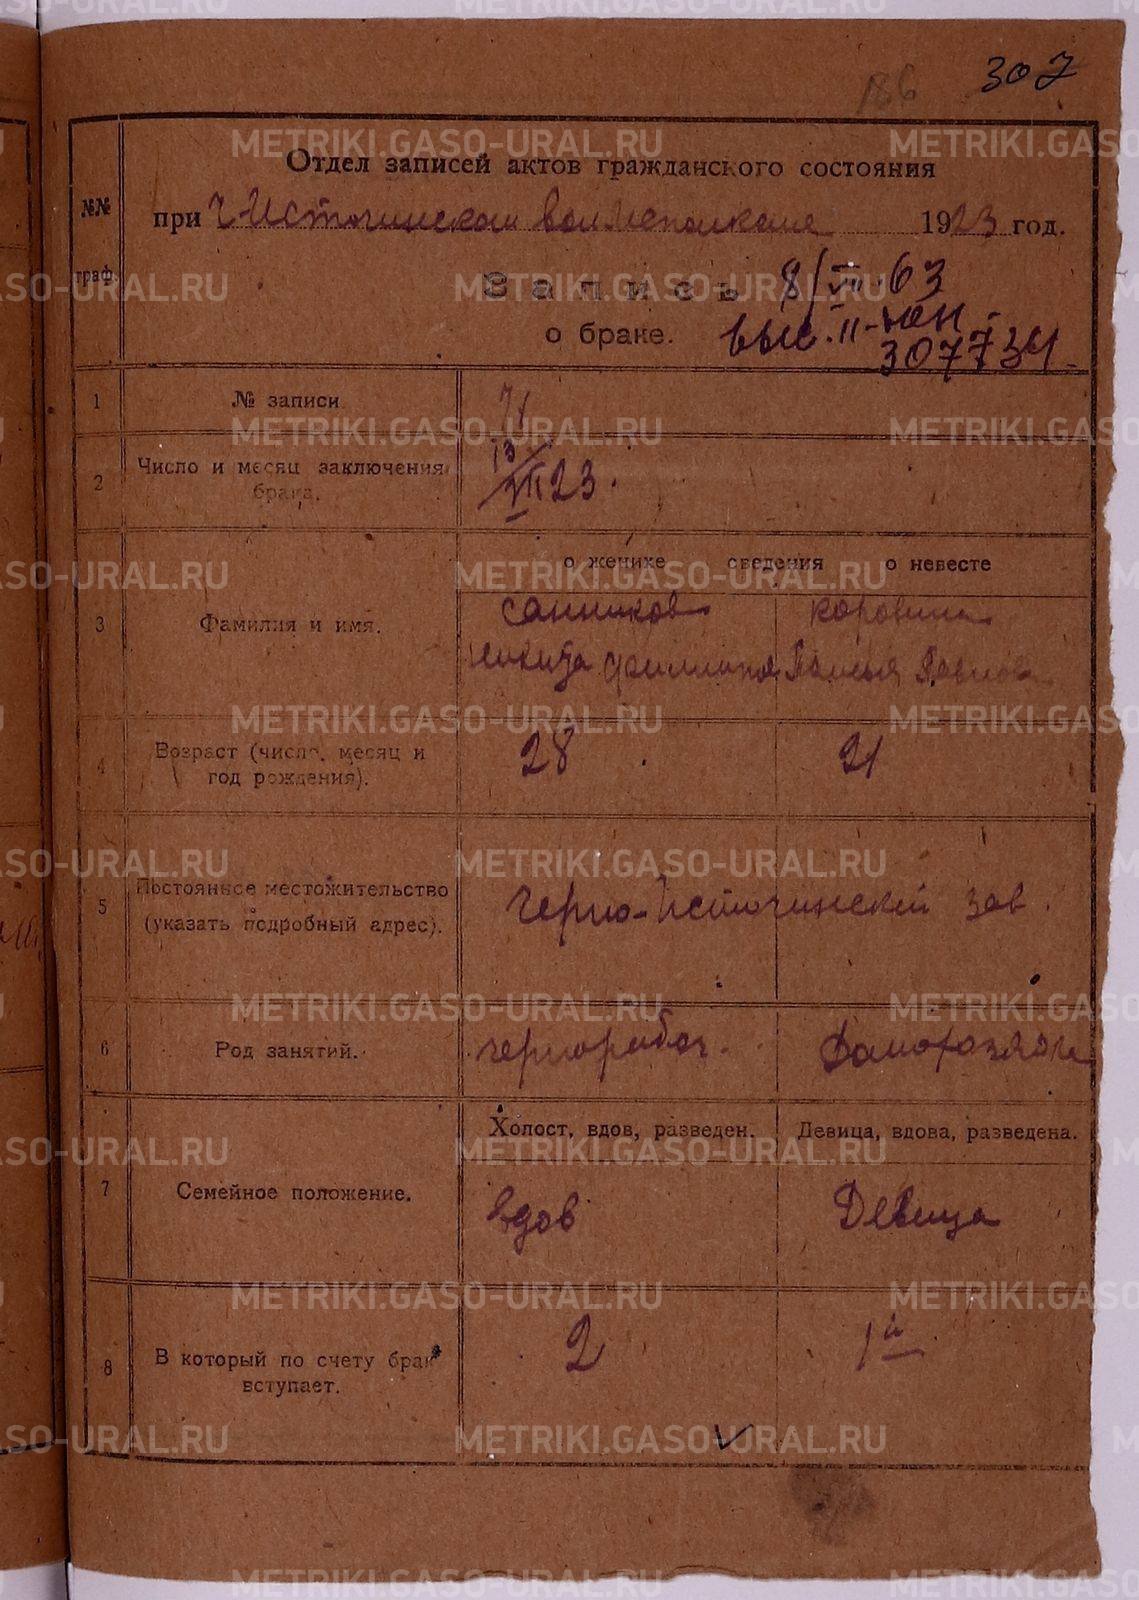 186 307
Отдел записей актов гражданского состояния
№№ граф.
при Ч Источинском волисполкоме 1923 год.
Запись
8/VII-63
о браке.
выс. II-ЮН
307734
1 № записи 71
2 Число и месяц заключения брака. 13/VII 23.
о женихе сведения о невесте
3 Фамилия и имя. Санников Коровина
Никита Филлипов Павлова
4 Возраст (число, месяц и год рождения). 28 21
5 Постоянное местожительство (указать подробный адрес). Черно-Источинский зав.
6 Род занятий. чернорабоч. Домохозяйк
Холост, вдов, разведен. Девица, вдова, разведена.
7 Семейное положение. вдов Девица
8 В который по счету брак вступает. 2 1й
METRIKI.GASO-URAL.RU